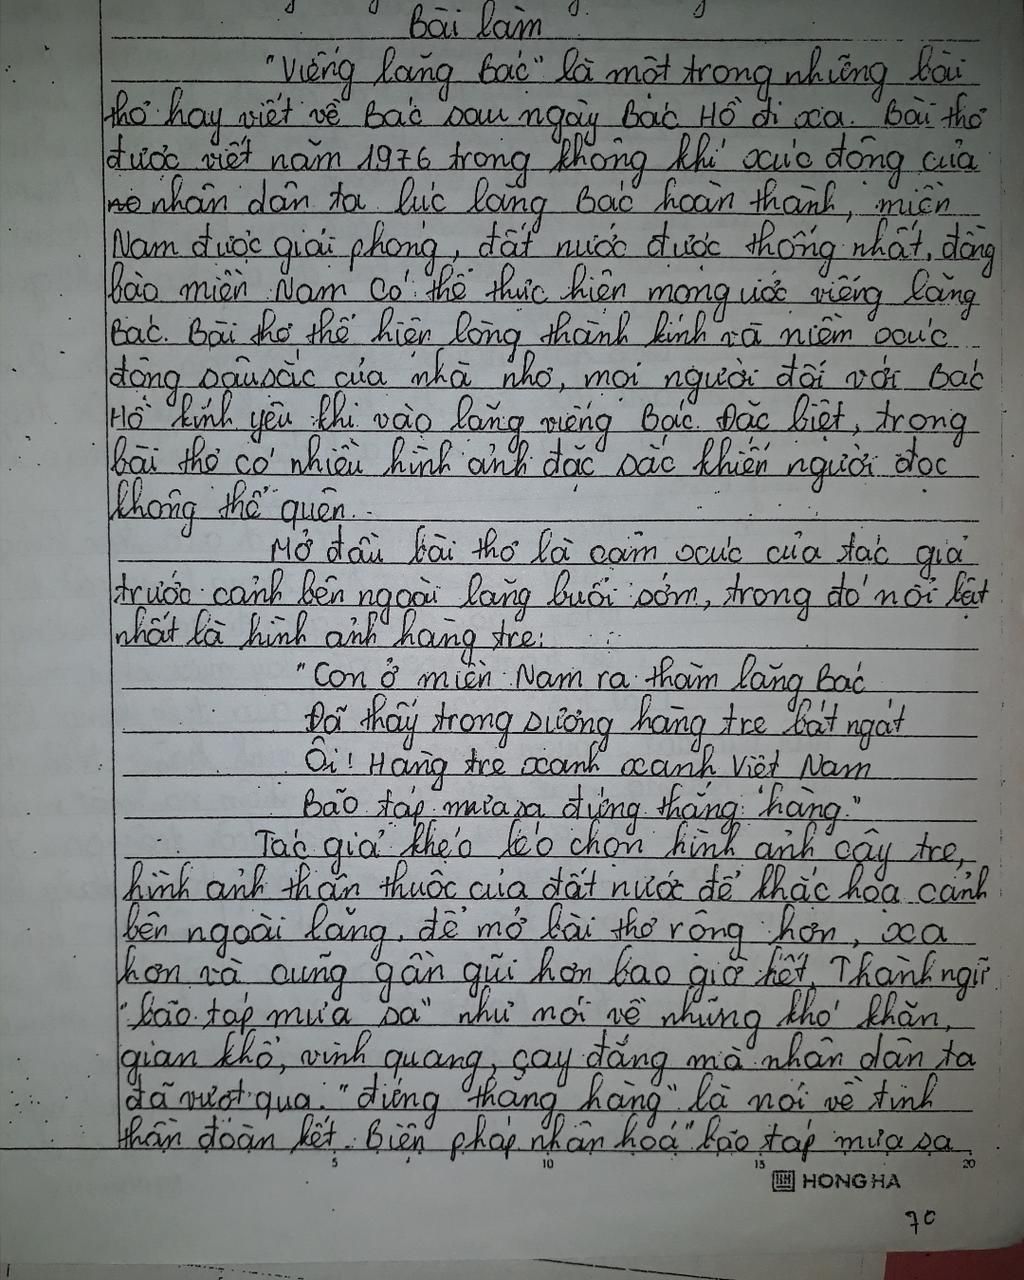 Bài làm
"Viếng lăng Bác" là một trong những bài
thơ hay viết về Bác sau ngày Bác Hồ đi xa. Bài thơ
được viết năm 1976 trong không khí xúc động của
nhân dân ta lúc lăng Bác hoàn thành, miền
Nam được giải phóng, đất nước được thống nhất, đồng
bào miền Nam có thể thực hiện mong ước viếng lăng
Bác. Bài thơ thể hiện lòng thành kính và niềm xúc
động sâu sắc của nhà nhơ, mọi người đối với Bác
Hồ kính yêu khi vào lăng viếng Bác. Đặc biệt, trong
bài thơ có nhiều hình ảnh đặc sắc khiến người đọc
không thể quên.
Mở đầu bài thơ là cảm xúc của tác giả
trước cảnh bên ngoài lăng buổi sớm, trong đó nổi bật
nhất là hình ảnh hàng tre:
"Con ở miền Nam ra thăm lăng Bác
Đã thấy trong sương hàng tre bát ngát
Ôi! Hàng tre xanh xanh Việt Nam
Bão táp mưa sa đứng thẳng hàng."
Tác giả khéo léo chọn hình ảnh cây tre,
hình ảnh thân thuộc của đất nước để khắc họa cảnh
bên ngoài lăng, để mở bài thơ rộng hơn, xa
hơn và cũng gần gũi hơn bao giờ hết. Thành ngữ
"bão táp mưa sa" như nói về những khó khăn,
gian khổ, vinh quang, cay đắng mà nhân dân ta
đã vượt qua. "đứng thẳng hàng" là nói về tinh
thần đoàn kết. Biện pháp nhân hoá "bão táp mưa sa
5 10 15 20
HONG HA
70